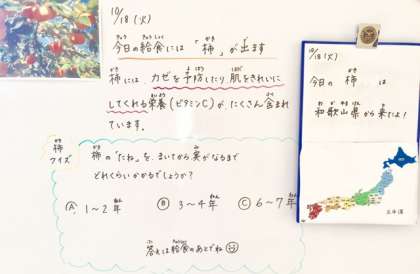 10/18(火)
今日の給食には「柿」が出ます
柿には、カゼを予防したり肌をきれいに
してくれる栄養(ビタミンC)が、たくさん含まれ
ています。
柿クイズ
柿の"たね"を、まいてから実がなるまで
どれくらいかかるでしょうか?
Ⓐ 1〜2年 Ⓑ 3〜4年 Ⓒ 6〜7年
答えは給食のあとでね
10/18(火)
今日の柿は
和歌山県から来たよ!
北海道